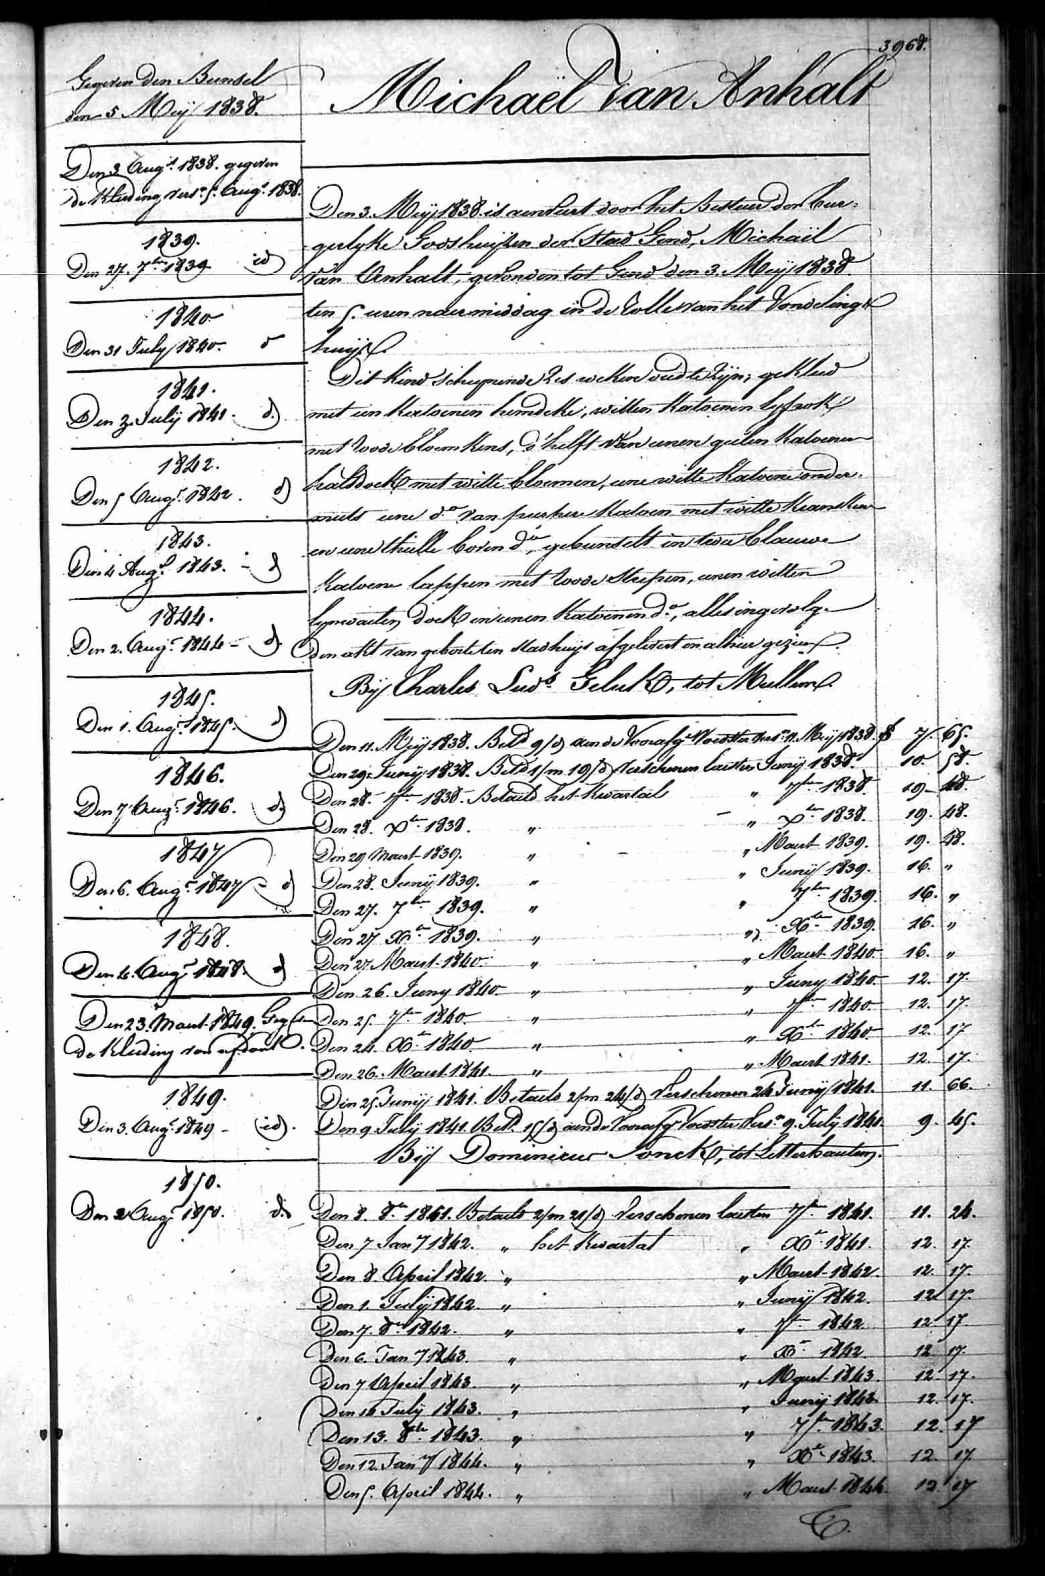 3968.
Michaël Van Anhalt
Gegeven den Bunsel
den 5 Meij 1838.
Den 3 Augt. 1838. gegeven
de Kleeding vers. 5. Augt. 1838.
1839.
Den 27. 7ber 1839 id
1840
Den 31 July 1840. d
1841.
Den 2 Julij 1841. d
1842.
Den 5 Augt. 1842. d
1843.
Den 4 Augt. 1843. - d
1844.
Den 2. Augt. 1844 - d
1845.
Den 1. Augt. 1845. d
1846.
Den 7 Augt. 1846. d
1847
Den 6. Augt. 1847 - d
1848.
Den 4. Augt. 1848. d
Den 23. Maert 1849. Geg
de Kleeding van
1849.
Den 3. Augt. 1849 - id.
1850.
Den 2 Augt. 1850. id.
Den 3. Meij 1838 is aenveert door het Bestuer der bur-
gerlyke Godshuijsen der Stad Gend, Michaël
Van Anhalt, gevonden tot Gend den 3. Meij 1838
ten 5. uren naermiddag in de rolle van het Vondeling
huijs.
Dit kind schynende zes weken oud te zijn, gekleed
met een katoenen hemdeke, witten katoenen lyfrok
met roode bloemkens, d'helft van eenen geelen katoenen
halsdoek met witte bloemen, eene witte katoene onder-
muts eene do. van purper katoen met witte kransken
en eene thulle boven do., gebunselt in twee blauwe
katoene lappen met roode strepen, eenen witten
lynwaeten doek en eenen katoenen do., alles ingevolge
den akt van geboorte ten stadhuijs afgelevert en alhier gezien.
Bij Charles Lud. Geluck, tot Mullem.
Den 11. Meij 1838. Betd. 9/d aen de Voorafge. Voedster vers. 11. Meij 1838. f 7. 65.
Den 29. Junij 1838. Betd. 1/m 19/d Verschenen laesten Junij 1838 10 58.
Den 28. 7ber 1838. Betaeld het Kwartael " 7ber 1838. 19 - 48.
Den 28. Xber 1838. " " Xber 1838. 19. 48.
Den 29 Maert 1839. " " Maert 1839. 19. 48.
Den 28. Junij 1839. " " Junij 1839. 16. "
Den 27. 7ber 1839. " " 7ber 1839. 16. "
Den 27 Xber 1839. " " Xber 1839. 16. "
Den 27. Maert 1840. " " Maert 1840. 16. "
Den 26. Juny 1840 " " Juny 1840. 12. 17.
Den 25. 7ber 1840. " " 7ber 1840. 12. 17.
Den 24. Xber 1840. " " Xber 1840. 12. 17
Den 26. Maert 1841. " " Maert 1841. 12. 17.
Den 25. Junij 1841. Betaeld 2/m 24/d Verschenen 24 Junij 1841. 11. 66.
Den 9 Julij 1841. Betd. 15/d aen de Voorafge Voedster vers. 9. Julij 1841. 9. 45.
Bij Dominicus Vonck, tot Letterhautem.
Den 8. 8ber 1841. Betaeld 2/m 21/d Verschenen laesten 7ber 1841. 11. 24.
Den 7 Jany 1842. " het Kwartael " Xber 1841. 12. 17.
Den 8. April 1842. " " Maert 1842. 12. 17.
Den 1. Julij 1842. " " Junij 1842. 12. 17.
Den 7. 8ber 1842. " " 7ber 1842 12. 17
Den 6. Jany 1843. " " Xber 1842 12 17
Den 7 April 1843. " " Maert 1843 12. 17.
Den 14 July 1843. " " Junij 1843. 12. 17.
Den 13. 8ber 1843. " " 7ber 1843. 12. 17
Den 12. Jany 1844. " " Xber 1843. 12. 17.
Den 5. April 1844. " " Maert 1844. 12 17